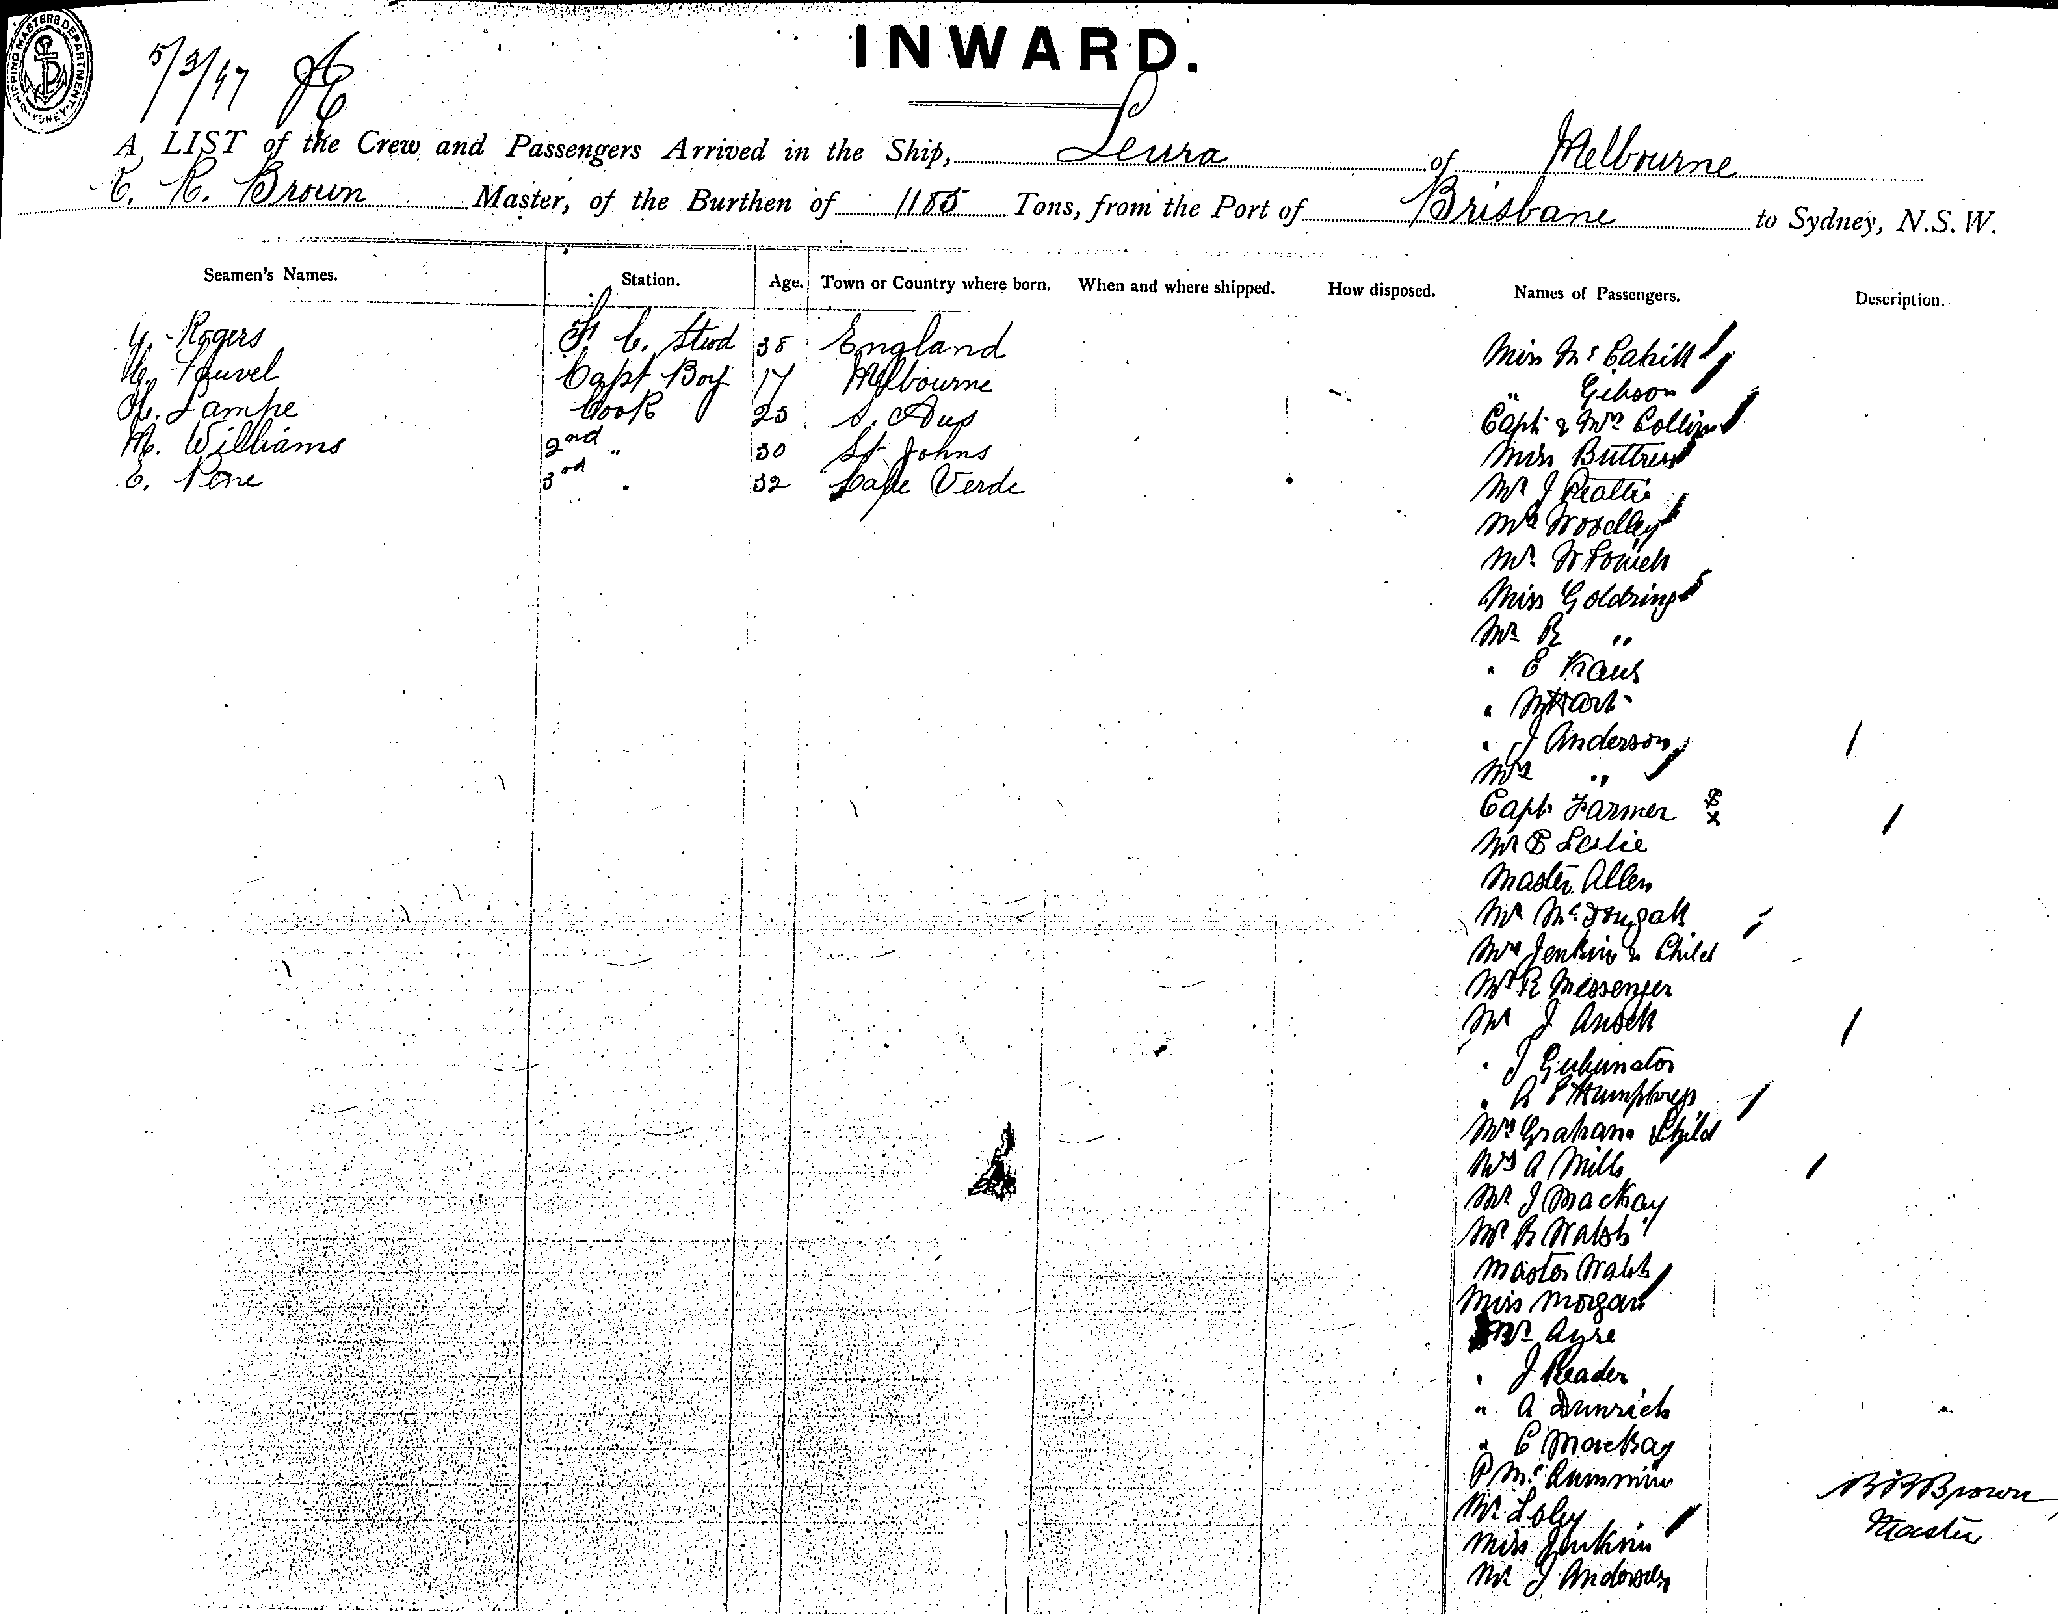 SHIPPING MASTERS DEPARTMENT SYDNEY
5/3/97
INWARD.
A LIST of the Crew and Passengers Arrived in the Ship, Leura of Melbourne
R. Brown Master, of the Burthen of 1185 Tons, from the Port of Brisbane to Sydney, N.S.W.
Seamen's Names. Station. Age. Town or Country where born. When and where shipped. How disposed. Names of Passengers. Description.
Rogers F. C. Stwd 38 England
Capt Boy 17 Melbourne
H. Lampe Cook 25 S. Aus
M. Williams 2nd " 30 St Johns
E. Pene 3rd " 32 Cape Verde
Miss McCahill
" Gibson
Capt & Mrs Collins
Miss Buttress
Mr J
Mrs Woodley
Mr W
Miss Goldring
Mr R "
" E Kraus
" Hart
" J Anderson
Mrs "
Capt Farmer
Mr Leslie
Master Allen
Mr McDougall
Mrs Jenkins & Child
Mr R Messenger
Mr J
" J
" A Humphreys
Mrs Graham & Child
Mrs A Mills
Mr J MacKay
Mr R Walsh
Master Walsh
Miss Morgan
Mr Ayre
" J Reader
" A
" C MacKay
P McCummins
Mr
Miss Jenkins
Mr J Anderson
Brown
Master